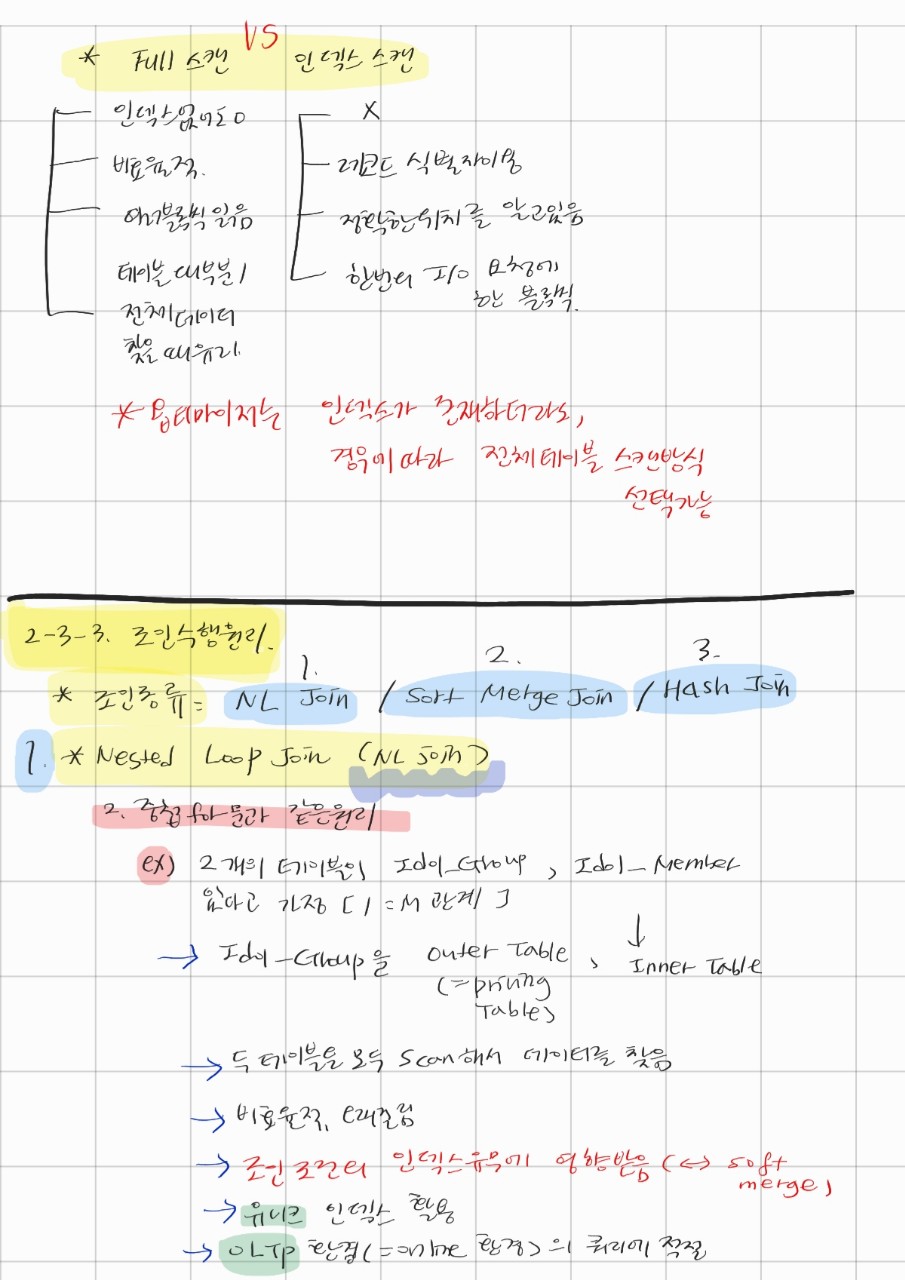 VS
* Full 스캔 인덱스 스캔
인덱스없어도O X
비효율적. 레코드 식별자이용
여러블록씩 읽음 정확한위치를 알고있음
테이블 대부분/ 한번의 I/O 요청에
전체데이터 한 블록씩.
찾을 때유리.
* 옵티마이저는 인덱스가 존재하더라도,
경우에 따라 전체테이블 스캔방식
선택가능
2-3-3. 조인수행원리.
1. 2. 3.
* 조인종류= NL Join / Sort Merge Join / Hash Join
1. * Nested Loop Join (NL join)
2. 중첩 for문과 같은원리
ex) 2개의 테이블이 Idol_Group , Idol_Member
있다고 가정 [1=M 관계]
↓
→ Idol-Group을 Outer Table , Inner Table
(=priving
Table)
→ 두 테이블을 모두 Scan해서 데이터를 찾음
→ 비효율적, 오래걸림
→ 조인 조건의 인덱스유무에 영향받음 (↔ soft
merge)
→ 유니크 인덱스 활용
→ OLTP 환경( 환경)의 쿼리에 적절